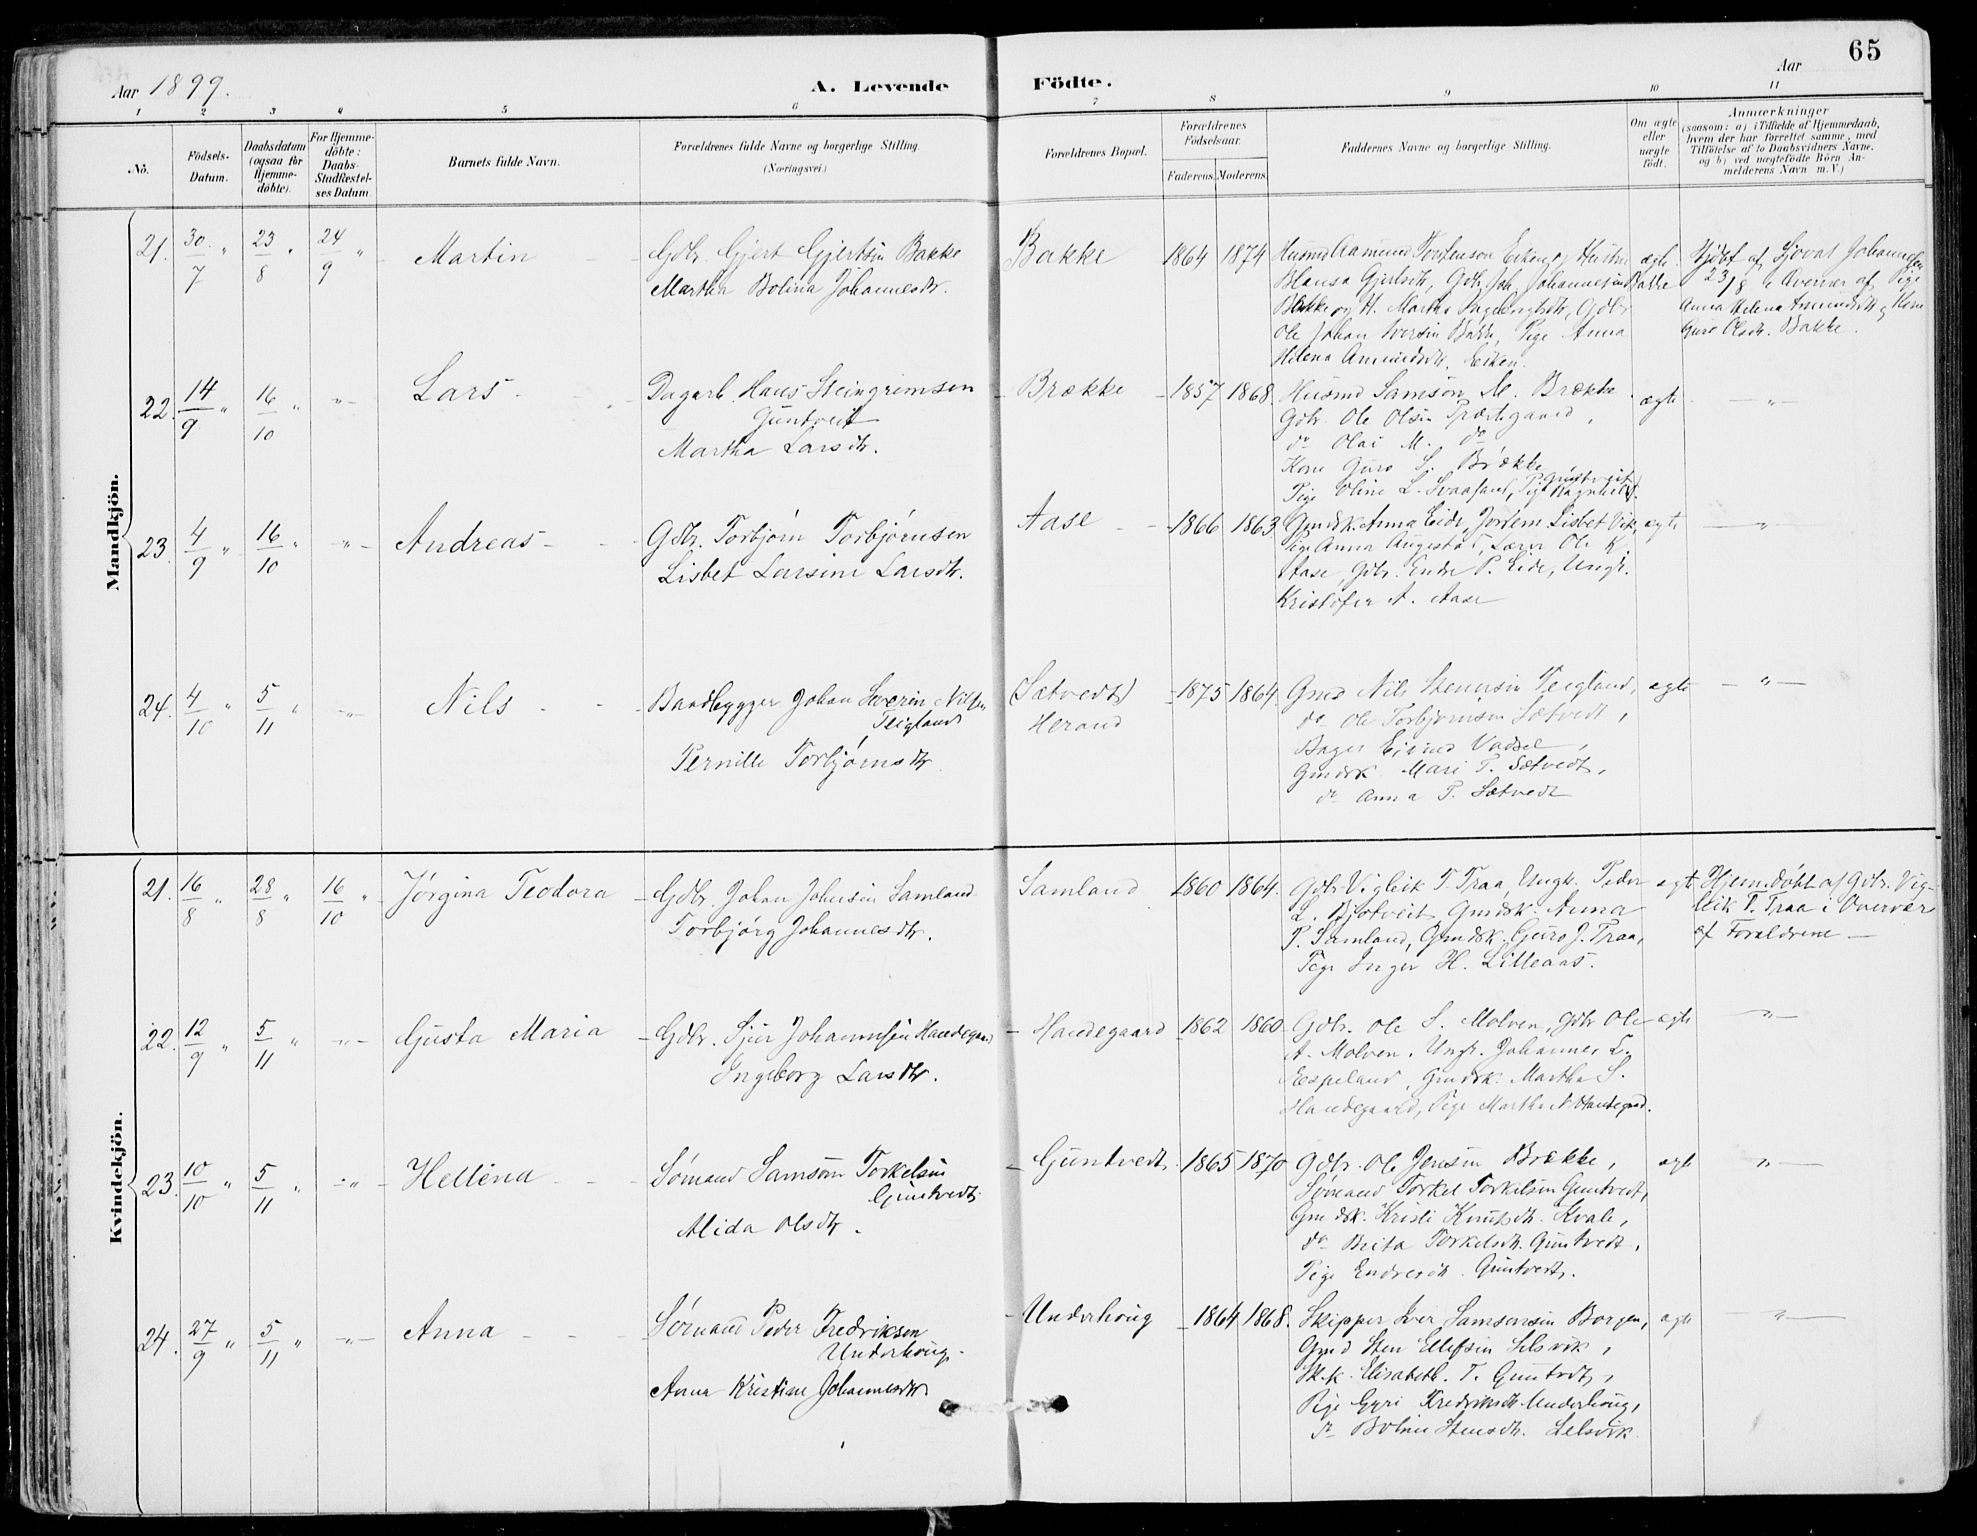 65
Aar 1899.
A. Levende Födte.
Aar
1 2 3 4 5 6 7 8 9 10 11
No.
Födsels-
Datum.
Daabsdatum
(ogsaa for
Hjemme-
döbte).
For Hjemme-
döbte:
Daabs-
Stadfæstel-
ses Datum.
Barnets fulde Navn.
Forældrenes fulde Navne og borgerlige Stilling.
(Næringsvei.)
Forældrenes Bopæl.
Forældrenes
Födselsaar.
Faderens. Moderens.
Faddernes Navne og borgerlige Stilling.
Om ægte
eller
uægte
födt.
Anmærkninger
(saasom: a) i Tilfælde af Hjemmedaab,
hvem der har forrettet samme, med
Tilföielse af to Daabsvidners Navne,
og b) ved uægtefödte Börn An-
melderens Navn m. V.)
Mandkjön.
21. 30/7 " 23/8 " 24/9 " Martin
Gdbr. Gjert Gjertsen Bakke
Martha Bolina Johannesdtr.
Bakke 1864 1874
Husmd Aamund Torstenson Eiken, Hustru
Gdbr. Joh. Johannesen Bakke
Bakke og H. Martha Ingebrigtsdtr, Gdbr
Ole Johan Iversen Bakke, Pige Anna
Helena Amundsdtr. Eiken.
ægte
Hjdbt af Sjovat Johannesen
23/8 i Overvær af Pige
Anna Helena Amundsdtr og Kone
Guro Olsdtr. Bakke.
22. 14/9 " 16/10 " " Lars
Dagarb. Hans Steingrimsen
Guntveit
Martha Larsdtr.
Brække 1857 1868.
Husmd Samson M. Brække
Gdbr. Ole Olsen Præstegaard,
do Olai M. do
Kone Guro S. Brække
Pige Oline L. Svaasand, Pige Ragnhild P. Guntveit.
ægte "
23. 4/9 " 16/10 " " Andreas
Gdbr. Torbjørn Torbjørnsen
Lisbet Larsine Larsdtr.
Aase 1866 1863
Gmdsk Anna Eide, Jordem. Lisbet Vik,
Pige Anna Augestad, Lærer Ole K.
Aase, Gdbr. Endre P. Eide, Ungk.
Kristofer A. Aase
ægte "
24. 4/10 " 5/11 " " Nils
Baadbygger Johan Severin Nilsen
Teigland
Pernille Torbjørnsdtr
(Sætvedt)
Herand
1875 1864.
Gmd Nils Steinsen Teigland,
do Ole Torbjørnsen Sætvedt,
Bager Eivind Vadsel,
Gmdsk. Mari T. Sætvedt,
do Anna T. Sætvedt
ægte "
Kvindekjön.
21. 16/8 " 28/8 " 16/10 " Jørgina Teodora
Gdbr. Johan Johnsen Samland
Torbjørg Johannesdtr.
Samland 1860 1864.
Gdbr Vigleik T. Traa, Ungk. Peder
L. Bjotveit, Gmdsk. Anna
P. Samland, Gmdsk. Guro J. Traa,
Pige Inger H. Litleaas.
ægte
Hjemdöbt af Gdbr. Vig-
leik T. Traa i Overvær
af Forældrene
22. 12/9 " 5/11 " " Gjusta Maria
Gdbr. Sjur Johannesen Handegaard
Ingeborg Larsdtr.
Handegaard 1862 1860.
Gdbr. Ole S. Molven, Gdbr Ole
A. Molven, Ungk. Johannes L.
Espeland, Gmdsk. Martha S.
Handegaard, Pige Martha N. Handegaard.
ægte "
23. 10/10 " 5/11 " " Hellena
Sømand Samson Torkelsen
Guntvedt
Alida Olsdtr.
Guntvedt 1865 1870
Gdbr. Ole Jensen Brække,
Sømand Torkel Torkelsen Guntvedt,
Gmdsk. Kristi Knutsdtr. Kvale,
do Brita Torkelsdtr. Guntvedt,
Pige Endresdtr. Guntvedt.
ægte "
24. 27/9 " 5/11 " " Anna
Sømand Peder Fredriksen
Underhoug
Anna Kristine Johannesdtr
Underhoug 1864 1868.
Skipper Iver Samsonsen Borgen,
Gmd Sten Ellefsen Selsvik,
Sk.k. Elisabeth T. Guntvedt,
Pige Gyri Fredriksdtr Underhoug,
do Boline Stensdtr. Selsvik
ægte "